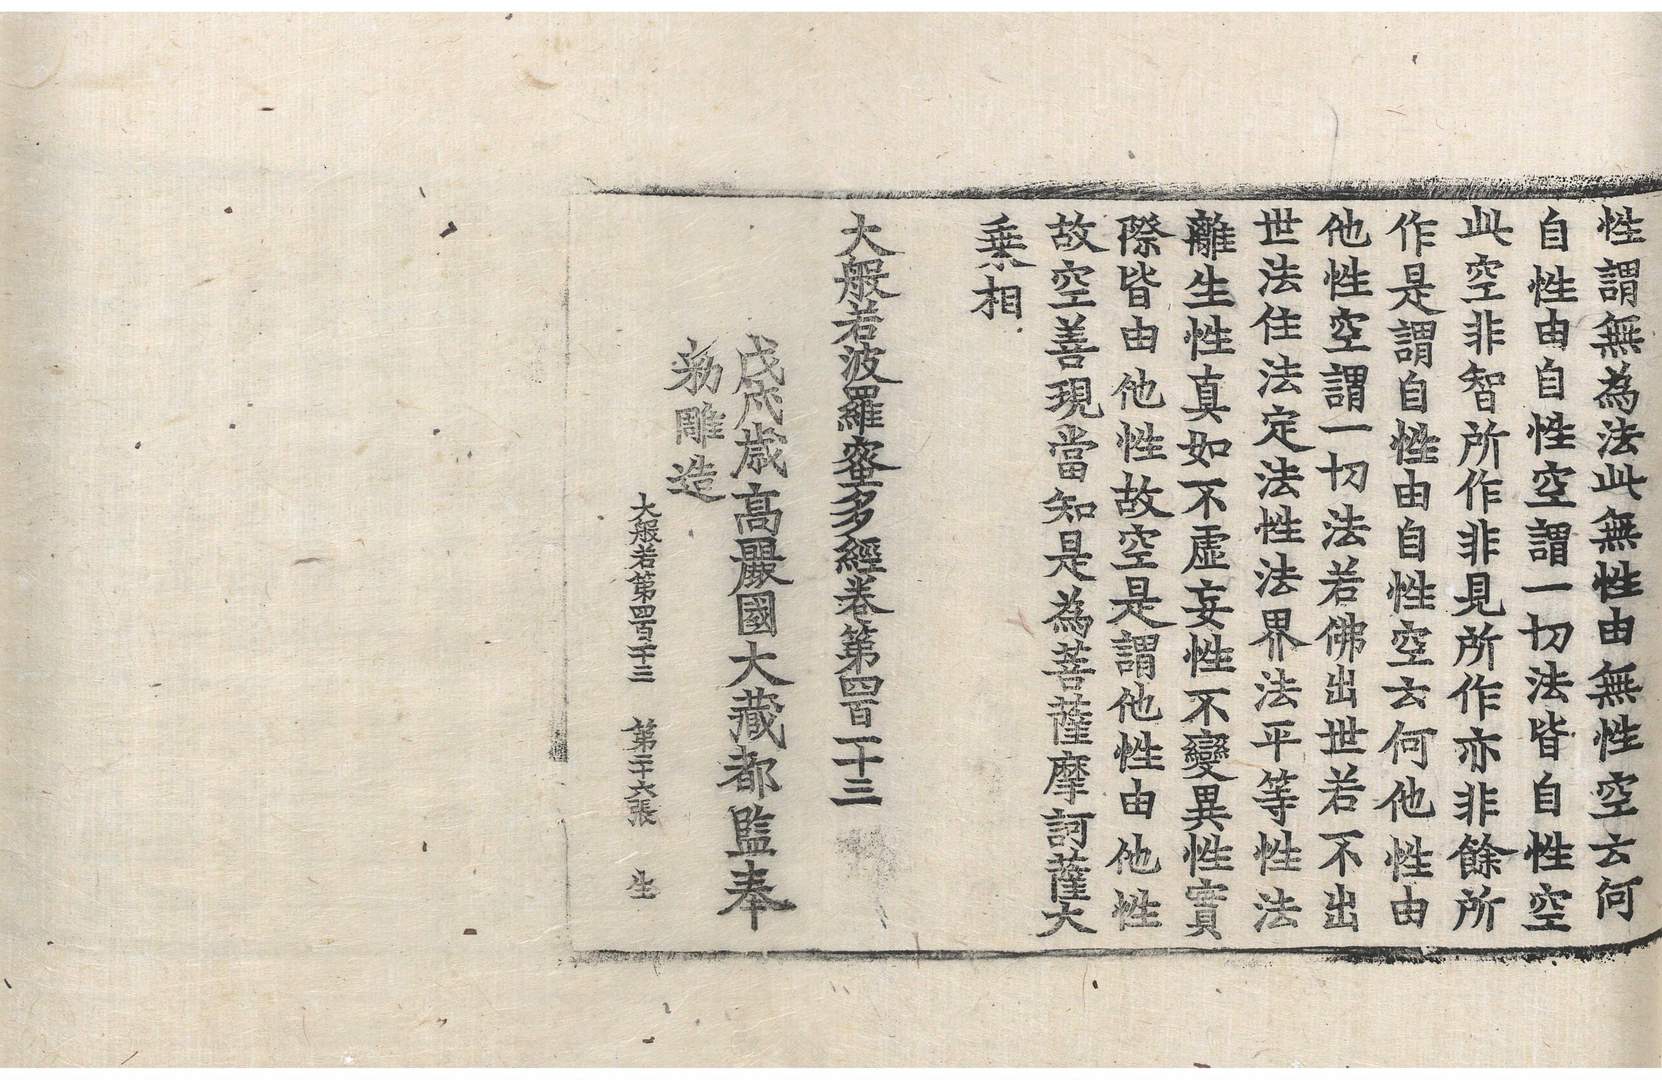 性謂無為法此無性由無性空云何
自性由自性空謂一切法皆自性空
此空非智所作非見所作亦非餘所
作是謂自性由自性空云何他性由
他性空謂一切法若佛出世若不出
世法住法定法性法界法平等性法
離生性真如不虛妄性不變異性實
際皆由他性故空是謂他性由他性
故空善現當知是為菩薩摩訶薩大
乗相
大般若波羅蜜多經卷第四百一十三
戊戌歲高麗國大藏都監奉
勑雕造
大般若第四百一十三 第二十六張 生